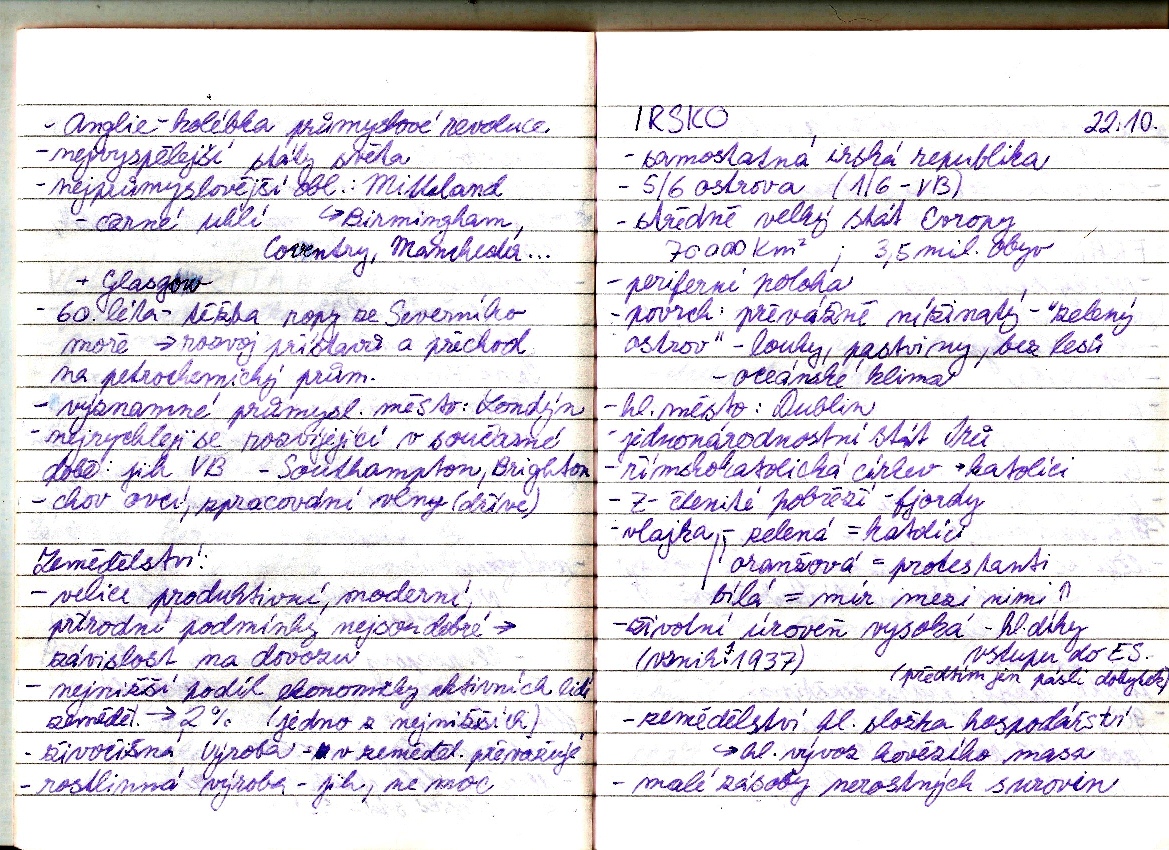 - Anglie - kolébka průmyslové revoluce
- nejvyspělejší státy světa
- nejprůmyslovější obl.: Mittland
- černé uhlí ↳ Birmingham,
Coventry, Manchester...
+ Glasgow
- 60. léta - těžba ropy ze Severního
moře → rozvoj přístavů a přechod
na petrochemický prům.
- významné průmysl. město: Londýn
- nejrychleji se rozvíjející v současné
době: jih VB - Southampton, Brighton
- chov ovcí, zpracování vlny (dříve)
Zemědělství:
- velice produktivní, moderní,
přírodní podmínky nejsou dobré →
závislost na dovozu
- nejnižší podíl ekonomicky aktivních lidí
zeměděl. → 2% (jedno z nejnižších)
- živočišná výroba - v zeměděl. převažuje
- rostlinná výroba - jih, ne moc
IRSKO 22.10.
- samostatná irská republika
- 5/6 ostrova (1/6 - VB)
- středně velký stát Evropy
70 000 km² ; 3,5 mil. obyv
- periferní poloha
- povrch: převážně nížinatý - "zelený
ostrov" - louky, pastviny, bez lesů
- oceánské klima
- hl. město: Dublin
- jednonárodnostní stát Irů
- římskokatolická církev → katolíci
- Z - členité pobřeží - fjordy
- vlajka - zelená = katolíci
oranžová = protestanti
bílá = mír mezi nimi ↑
- životní úroveň vysoká - hl. díky
(vznik: 1937) vstupu do ES.
(předtím jen pásli dobytek)
- zemědělství hl. složka hospodářství
↳ hl. vývoz hovězího masa
- malé zásoby nerostných surovin